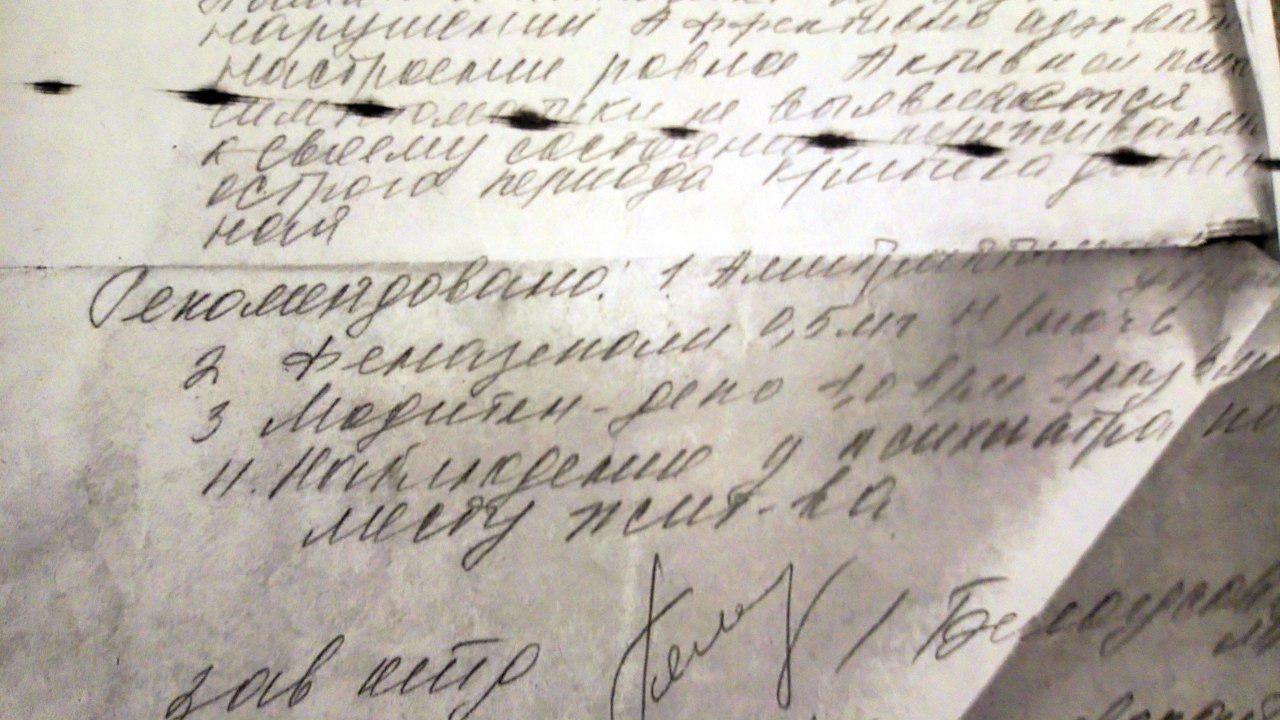 нарушений Аффективно адекват
настроение ровное Активной псих
симптоматики не выявляется
к своему состоянию переживаниям
острого периода критика
ная
Рекомендовано: 1 Амитриптилин
2 Феназепам 0,5мг н/ночь
3 Модитен-депо 1,0 в/м 1 раз в
4. Наблюдение у психиатра по
месту жит-ва
зав отд / Белоусова